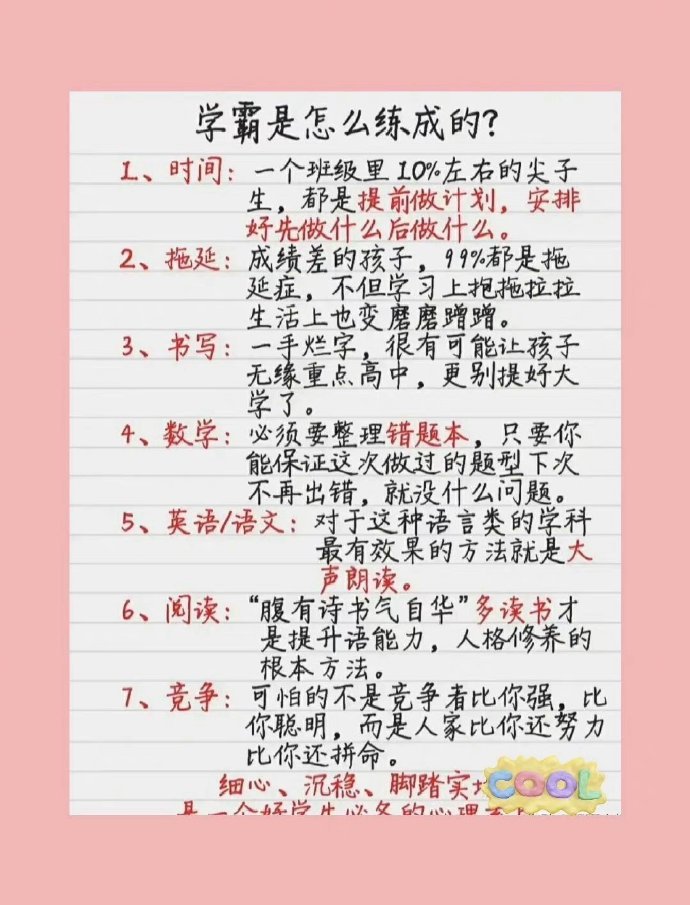 学霸是怎么练成的?
1、时间:一个班级里10%左右的尖子
生,都是提前做计划,安排
好先做什么后做什么。
2、拖延:成绩差的孩子,99%都是拖
延症,不但学习上拖拖拉拉
生活上也变磨磨蹭蹭。
3、书写:一手烂字,很有可能让孩子
无缘重点高中,更别提好大
学了。
4、数学:必须要整理错题本,只要你
能保证这次做过的题型下次
不再出错,就没什么问题。
5、英语/语文:对于这种语言类的学科
最有效果的方法就是大
声朗读。
6、阅读:“腹有诗书气自华”多读书才
是提升语能力,人格修养的
根本方法。
7、竞争:可怕的不是竞争者比你强,比
你聪明,而是人家比你还努力
比你还拼命。
细心、沉稳、脚踏实
是一个好学生必备的心理
COOL